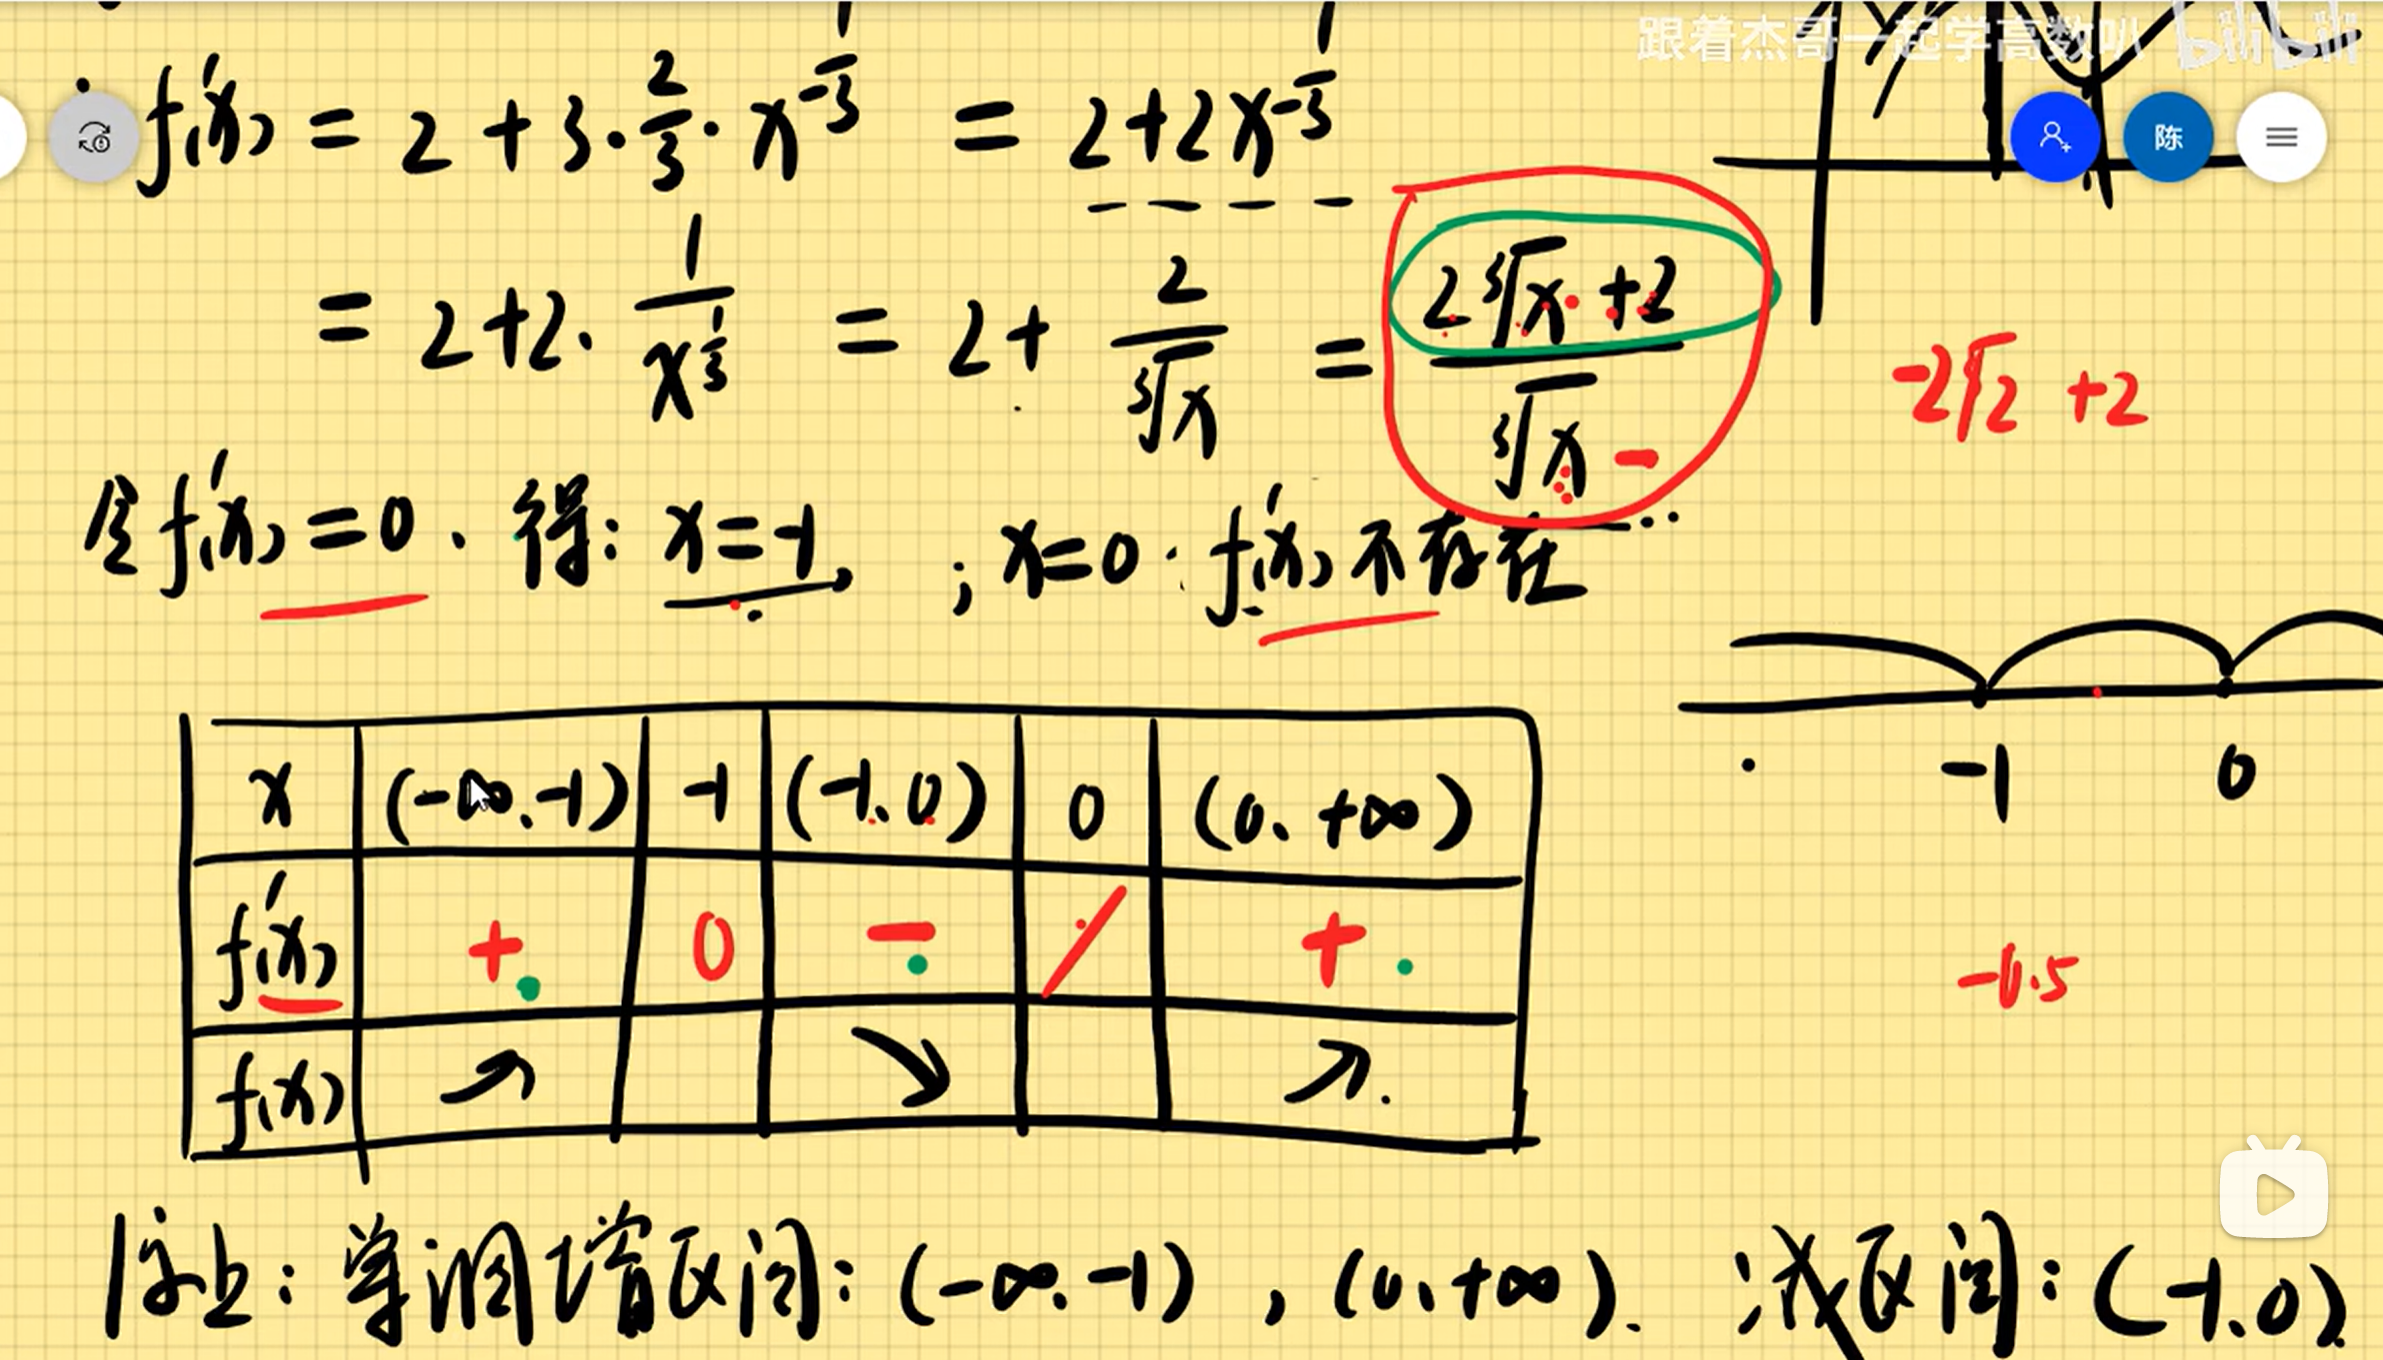 跟着杰哥一起学高数叭 bilibili
f'(x) = 2 + 3·2/3·x^(-1/3) = 2+2x^(-1/3)
陈
= 2+2·1/x^(1/3) = 2+ 2/∛x = (2∛x +2)/∛x -
-2∛2 +2
令f'(x)=0. 得: x=-1, ; x=0· f'(x)不存在
-1 0
x (-∞.-1) -1 (-1.0) 0 (0.+∞)
f'(x) + 0 - / +
-0.5
f(x) ↗ ↘ ↗.
综上: 单调增区间: (-∞.-1) , (0.+∞). 减区间: (-1.0)